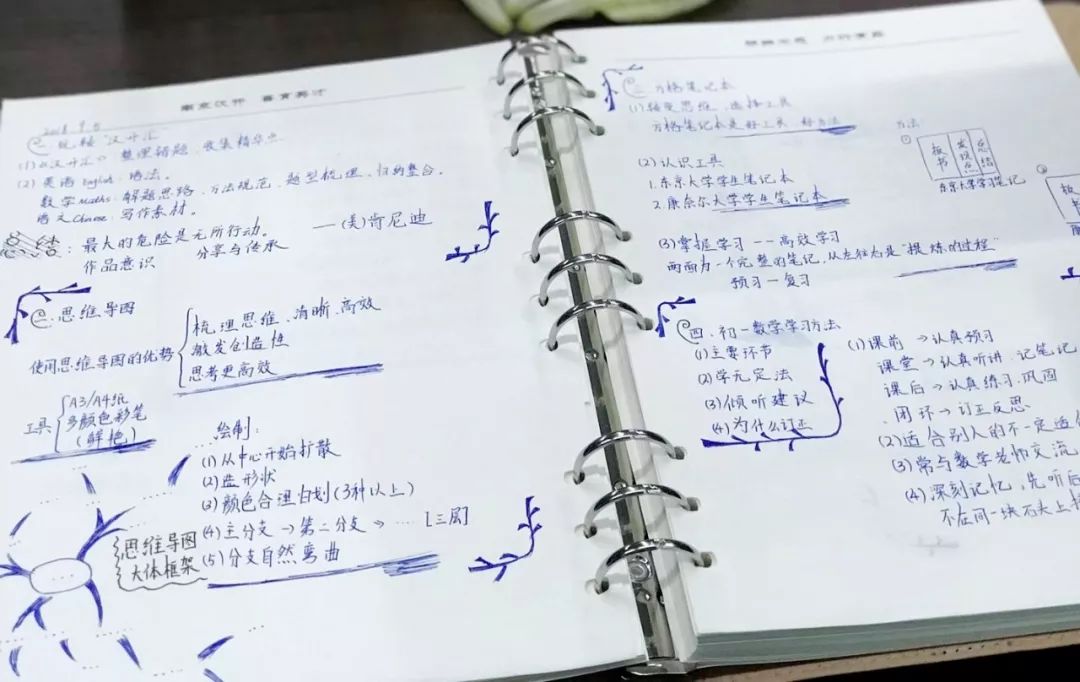 2018.9.5
(1) 整理错题、收集精华
(2) 英语 English 语法。
数学 maths 解题思路、方法规范、题型梳理、归纳整合。
语文 Chinese 写作素材。
总结：最大的危险是无所行动。 ——(美)肯尼迪
作品意识 分享与传承
二.思维导图
使用思维导图的优势
梳理思维、清晰、高效
激发创造性
思考更高效
工具
A3/A4纸
多颜色彩笔
(鲜艳)
绘制：
(1) 从中心开始扩散
(2) 画形状
(3) 颜色合理 (3种以上)
(4) 主分支 → 第二分支 → …… [三层]
(5) 分支自然弯曲
思维导图
大体框架
三.方格笔记本
(1) 接受思维、选择工具
方格笔记本是好工具、好方法
(2) 认识工具
1.东京大学学生笔记本
2.康奈尔大学学生笔记本
方法
①
板书
发现点
总结
东京大学学习笔记
②
板书
(3) 掌握学习 —— 高效学习
两面为一个完整的笔记，从左往右是"提炼的过程"
预习—复习
四.初一数学学习方法
(1) 主要环节
(2) 学无定法
(3) 倾听建议
(4) 为什么订正
(1) 课前 → 认真预习
课堂 → 认真听讲、记笔记
课后 → 认真练习、巩固
闭环 → 订正反思
(2) 适合别人的不一定适
(3) 常与数学老师交流
(4) 深刻记忆，先听后
不在同一块石头上